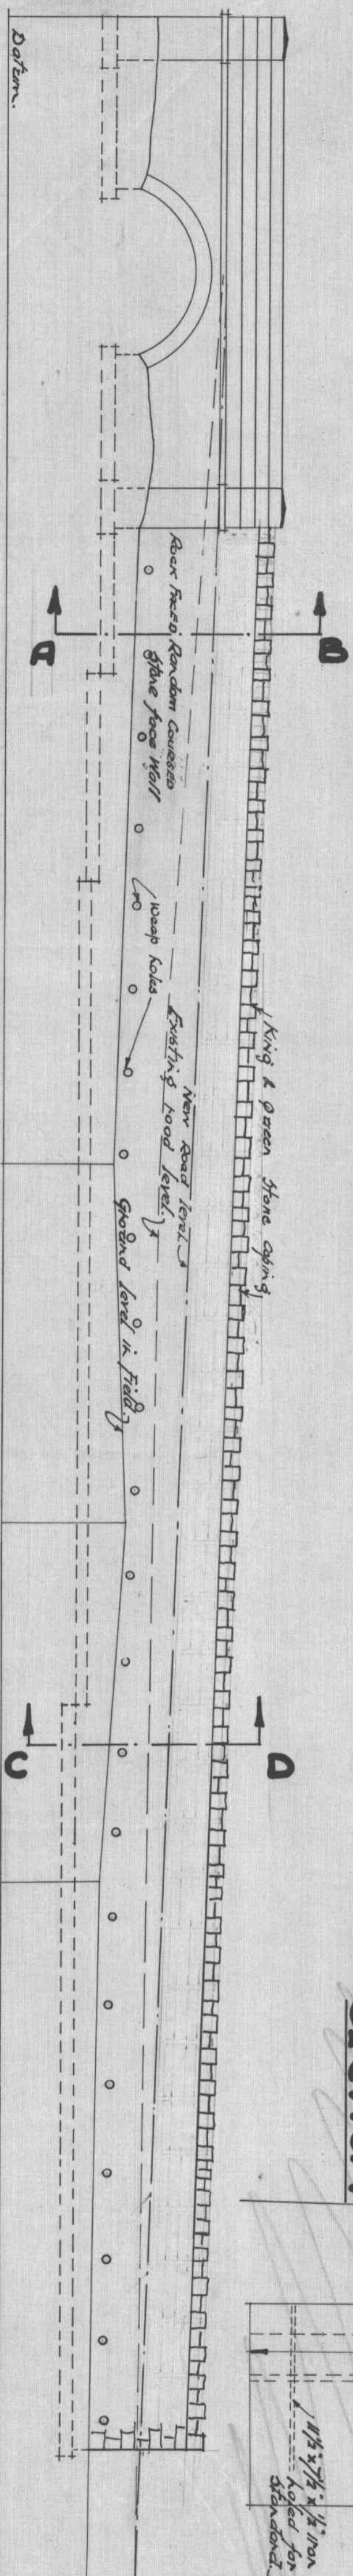 Datum.
A
B
Rock Faced, Random Coursed
Stone face Wall
Weep holes
King & Queen Stone Coping
New Road level
Existing Road level.
Ground level in Field.
C
D
11½" x 7½" x ½" iron
holed for
Standard.